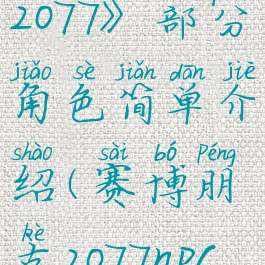 2077》部分
jiǎo sè jiǎn dān jiè
角色简单介
shào sài bó Péng
绍(赛博朋
kè
克2077npc